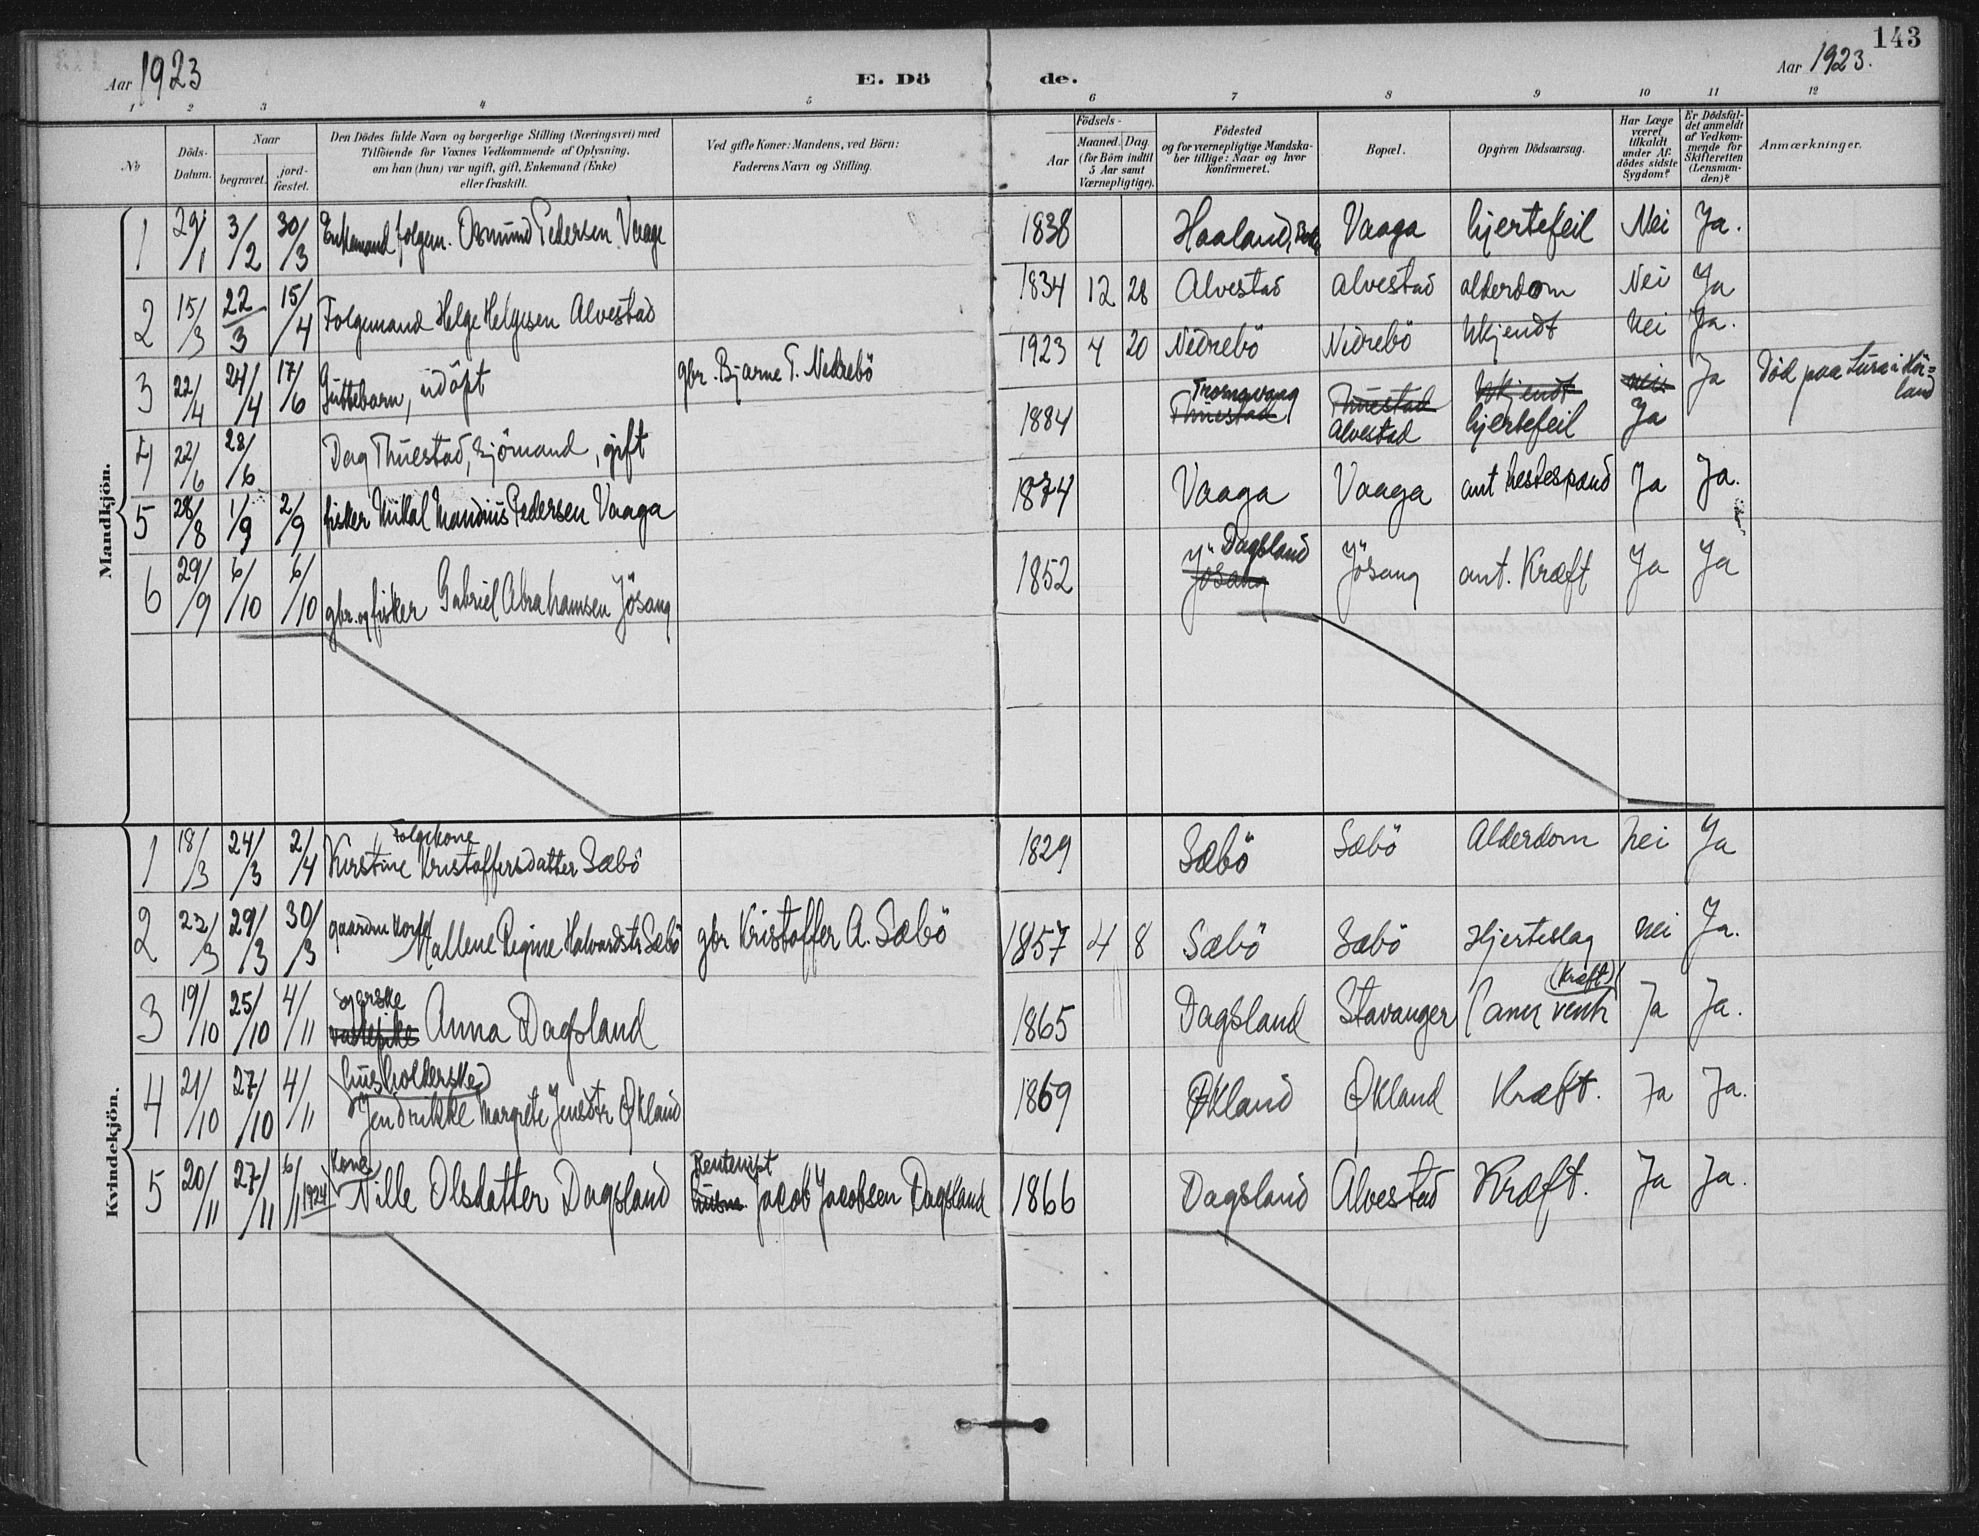 143
Aar 1923
E. Dö de.
Aar 1923.
1 2 3 4 5 6 7 8 9 10 11 12
No
Döds-Datum.
Naar
begravet.
jord-fæstet.
Den Dödes fulde Navn og borgerlige Stilling (Næringsvei) med
Tilföiende for Voxnes Vedkommende af Oplysning,
om han (hun) var ugift, gift, Enkemand (Enke)
eller fraskilt.
Ved gifte Koner: Mandens, ved Börn:
Faderens Navn og Stilling.
Födsels-
Aar
Maaned.
Dag
(for Börn indtil
5 Aar samt
Værnepligtige).
Födested
og for værnepligtige Mandska-
ber tillige: Naar og hvor
konfirmeret.
Bopæl.
Opgiven Dödsaarsag.
Har Læge
været
tilkaldt
under Af-
dödes sidste
Sygdom?
Er Dödsfal-
det anmeldt
af Vedkom-
mende for
Skifteretten
(Lensman-
den)?
Anmærkninger.
Mandkjön.
1 29/1 3/2 30/3 Enkemand folgem. Osmund Pedersen Vaage 1838 Haaland, Vaaga hjertefeil Nei Ja.
2 15/3 22/3 15/4 Folgemand Helge Helgesen Alvestad 1834 12 28 Alvestad Alvestad alderdom Nei Ja
3 22/4 24/4 17/6 Guttebarn, udöpt gbr. Bjarne T. Nedrebö 1923 4 20 Nedrebö Nedrebö Ukjendt Nei Ja.
4 22/6 28/6 Dag Thuestad, Sjömand, gift 1884 Thuestad Tromsvang Thuestad Alvestad Ukjendt hjertefeil nei Ja Ja Död paa Lura i Hör=
land
5 28/8 1/9 2/9 fisker Mikal Mandius Pedersen Vaaga 1874 Vaaga Vaaga ant hestespand Ja Ja.
6 29/9 6/10 6/10 gbr. og fisker Gabriel Abrahamsen Jösang 1852 Jösang Dagsland Jösang ant. Kræft Ja Ja
Kvindekjön.
1 18/3 24/3 2/4 Folgekone Kirstine Kristoffersdatter Sæbö 1829 Sæbö Sæbö Alderdom Nei Ja
2 23/3 29/3 30/3 gaardm kone Mallene Regine Halvardsdtr Sæbö gbr Kristoffer A. Sæbö 1857 4 8 Sæbö Sæbö Hjerteslag Nei Ja.
3 19/10 25/10 4/11 Syerske Anna Dagsland 1865 Dagsland Stavanger Canc ventr (Kræft) Ja Ja.
4 21/10 27/10 4/11 husholderske Jendrikke Margrete Jensdtr Økland 1869 Økland Økland Kræft. Ja Ja.
5 20/11 27/11 6/11 1924 Kone Nille Olsdatter Dagsland Rentenist Jacob Jacobsen Dagsland 1866 Dagsland Alvestad Kræft. Ja Ja.